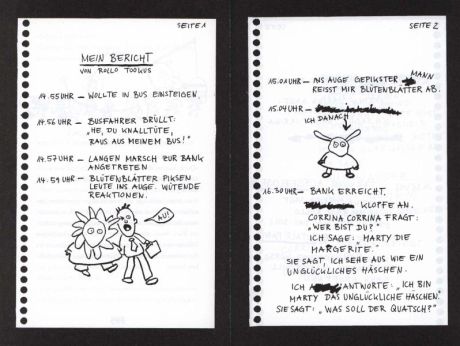 SEITE 1
MEIN BERICHT
VON ROLLO TOOKUS
14.55 UHR – WOLLTE IN BUS EINSTEIGEN.
14.56 UHR – BUSFAHRER BRÜLLT:
„HE, DU KNALLTÜTE,
RAUS AUS MEINEM BUS!"
14.57 UHR – LANGEN MARSCH ZUR BANK
ANGETRETEN
14.59 UHR – BLÜTENBLÄTTER PIKSEN
LEUTE INS AUGE. WÜTENDE
REAKTIONEN.
AU!
SEITE 2
15.01 UHR – INS AUGE GEPIKSTER MANN
REISST MIR BLÜTENBLÄTTER AB.
15.04 UHR –
ICH DANACH
16.30 UHR – BANK ERREICHT.
KLOPFE AN.
CORRINA CORRINA FRAGT:
„WER BIST DU?"
ICH SAGE: „MARTY DIE
MARGERITE."
SIE SAGT, ICH SEHE AUS WIE EIN
UNGLÜCKLICHES HÄSCHEN.
ICH ANTWORTE: „ICH BIN
MARTY DAS UNGLÜCKLICHE HÄSCHEN."
SIE SAGT: „WAS SOLL DER QUATSCH?"